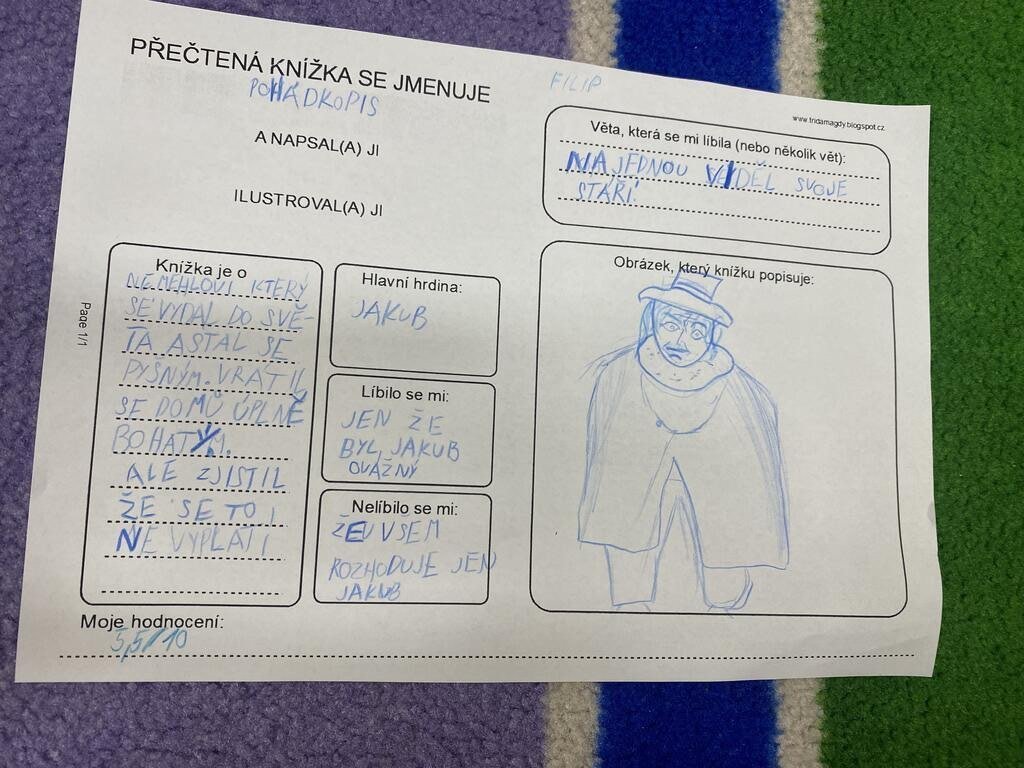 PŘEČTENÁ KNÍŽKA SE JMENUJE
POHÁDKOPIS
A NAPSAL(A) JI
ILUSTROVAL(A) JI
FILIP
www.tridamagdy.blogspot.cz
Věta, která se mi líbila (nebo několik vět):
NAJEDNOU VIDĚL SVOJE
STÁŘÍ.
Knížka je o
NEMEHLOVI KTERÝ
SE VYDAL DO SVĚ-
TA A STAL SE
PYŠNÝM. VRÁTIL
SE DOMŮ ÚPLNĚ
BOHATÝM.
ALE ZJISTIL
ŽE SE TO
NEVYPLATÍ
Hlavní hrdina:
JAKUB
Líbilo se mi:
JEN ŽE
BYL JAKUB
OVÁŽNÝ
Nelíbilo se mi:
ŽE VŠEM
ROZHODUJE JEN
JAKUB
Obrázek, který knížku popisuje:
Page 1/1
Moje hodnocení:
5,5/10